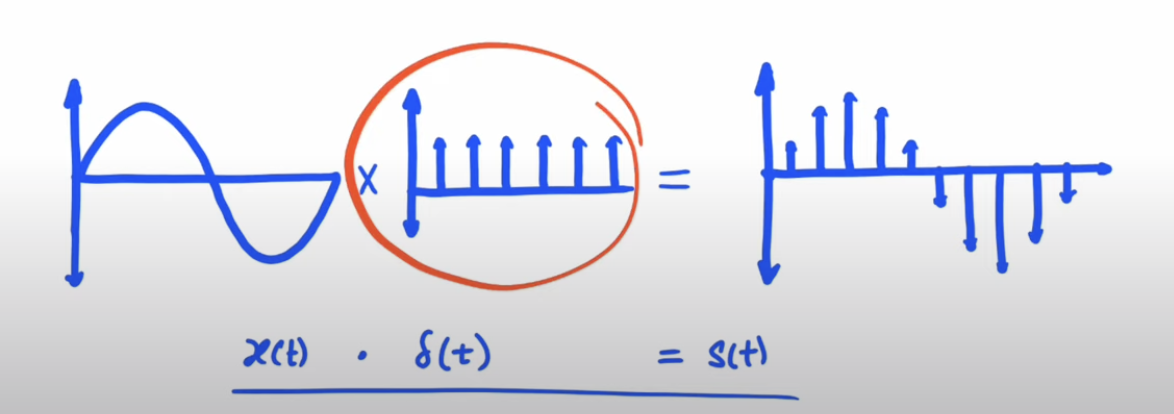 × =
x(t) · δ(t) = s(t)